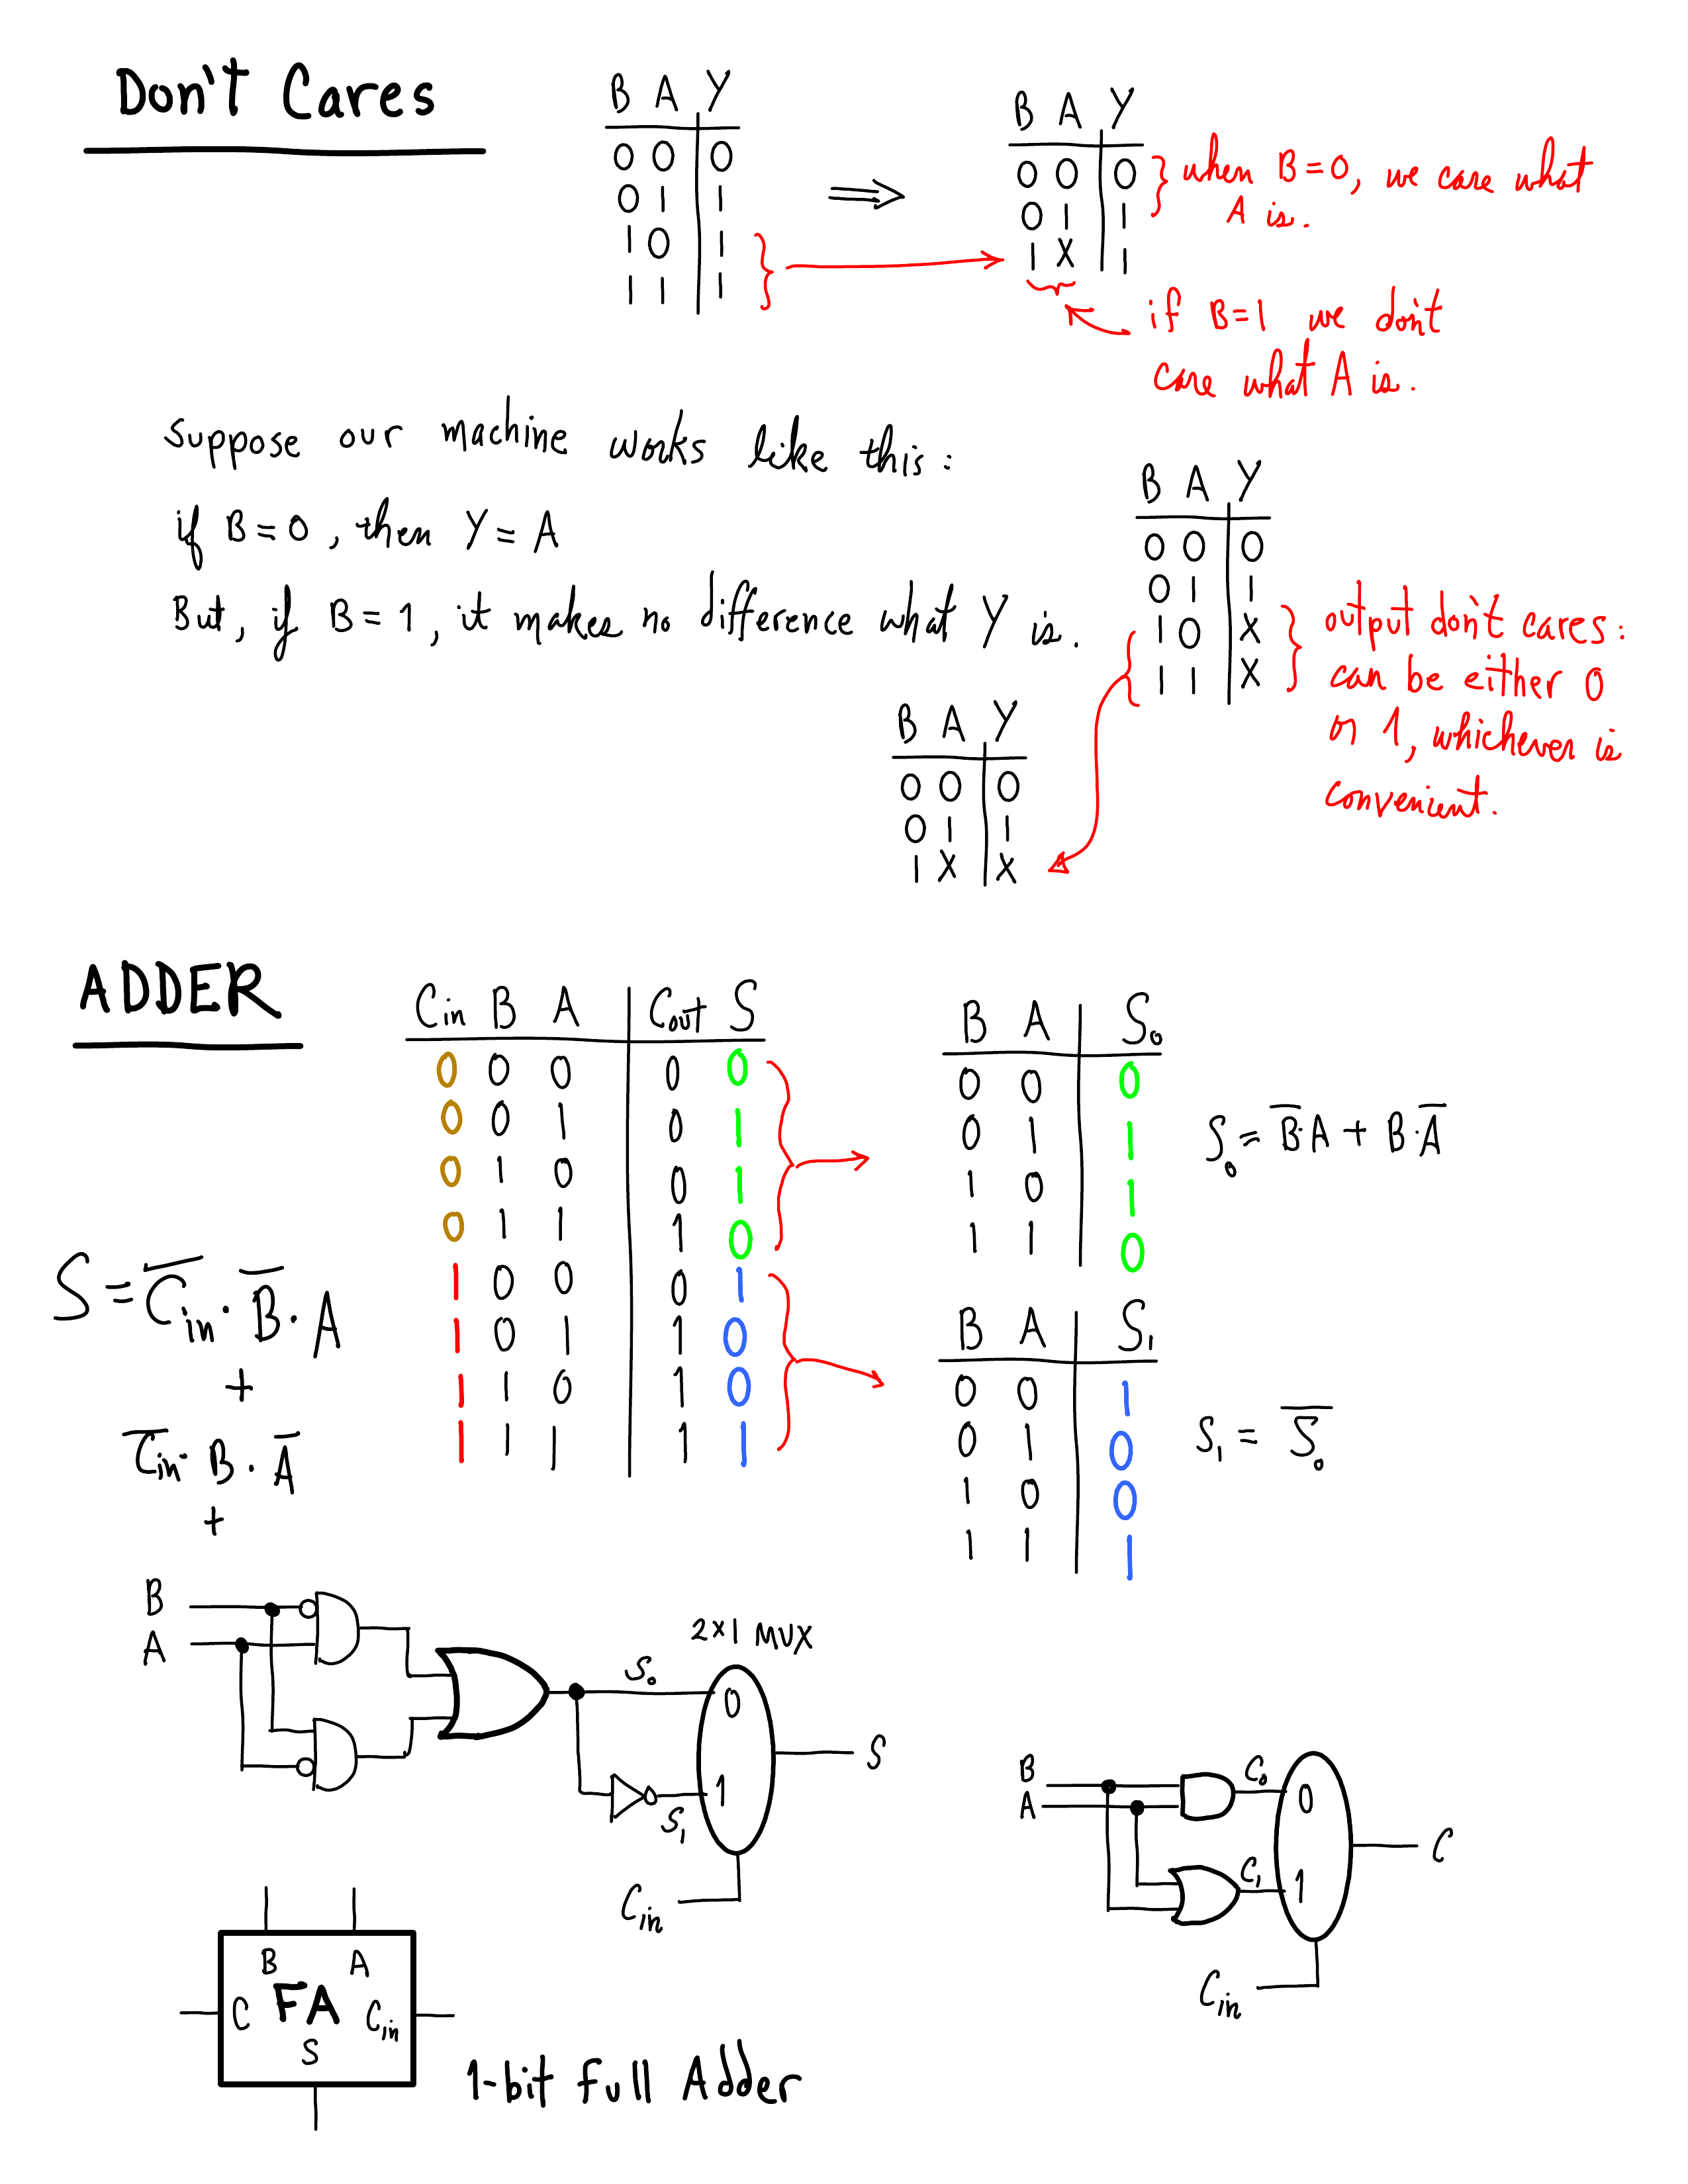 Don't Cares
B A Y
0 0 0
0 1 1
1 0 1
1 1 1
B A Y
0 0 0
0 1 1
1 X 1
when B=0, we care what
A is.
if B=1 we don't
care what A is.
Suppose our machine works like this:
if B=0, then Y=A
But, if B=1, it makes no difference what Y is.
B A Y
0 0 0
0 1 1
1 0 X
1 1 X
output don't cares:
can be either 0
or 1, whichever is
convenient.
B A Y
0 0 0
0 1 1
1 X X
ADDER
Cin B A Cout S
0 0 0 0 0
0 0 1 0 1
0 1 0 0 1
0 1 1 1 0
1 0 0 0 1
1 0 1 1 0
1 1 0 1 0
1 1 1 1 1
B A S₀
0 0 0
0 1 1
1 0 1
1 1 0
S₀ = B̅·A + B·A̅
B A S₁
0 0 1
0 1 0
1 0 0
1 1 1
S₁ = S̅₀
S = C̅in · B̅ · A
+
C̅in · B · A̅
+
B
A
S₀
S₁
2×1 MUX
0
1
S
Cin
B
A
C₀
C₁
0
1
C
Cin
B A
C FA Cin
S
1-bit Full Adder